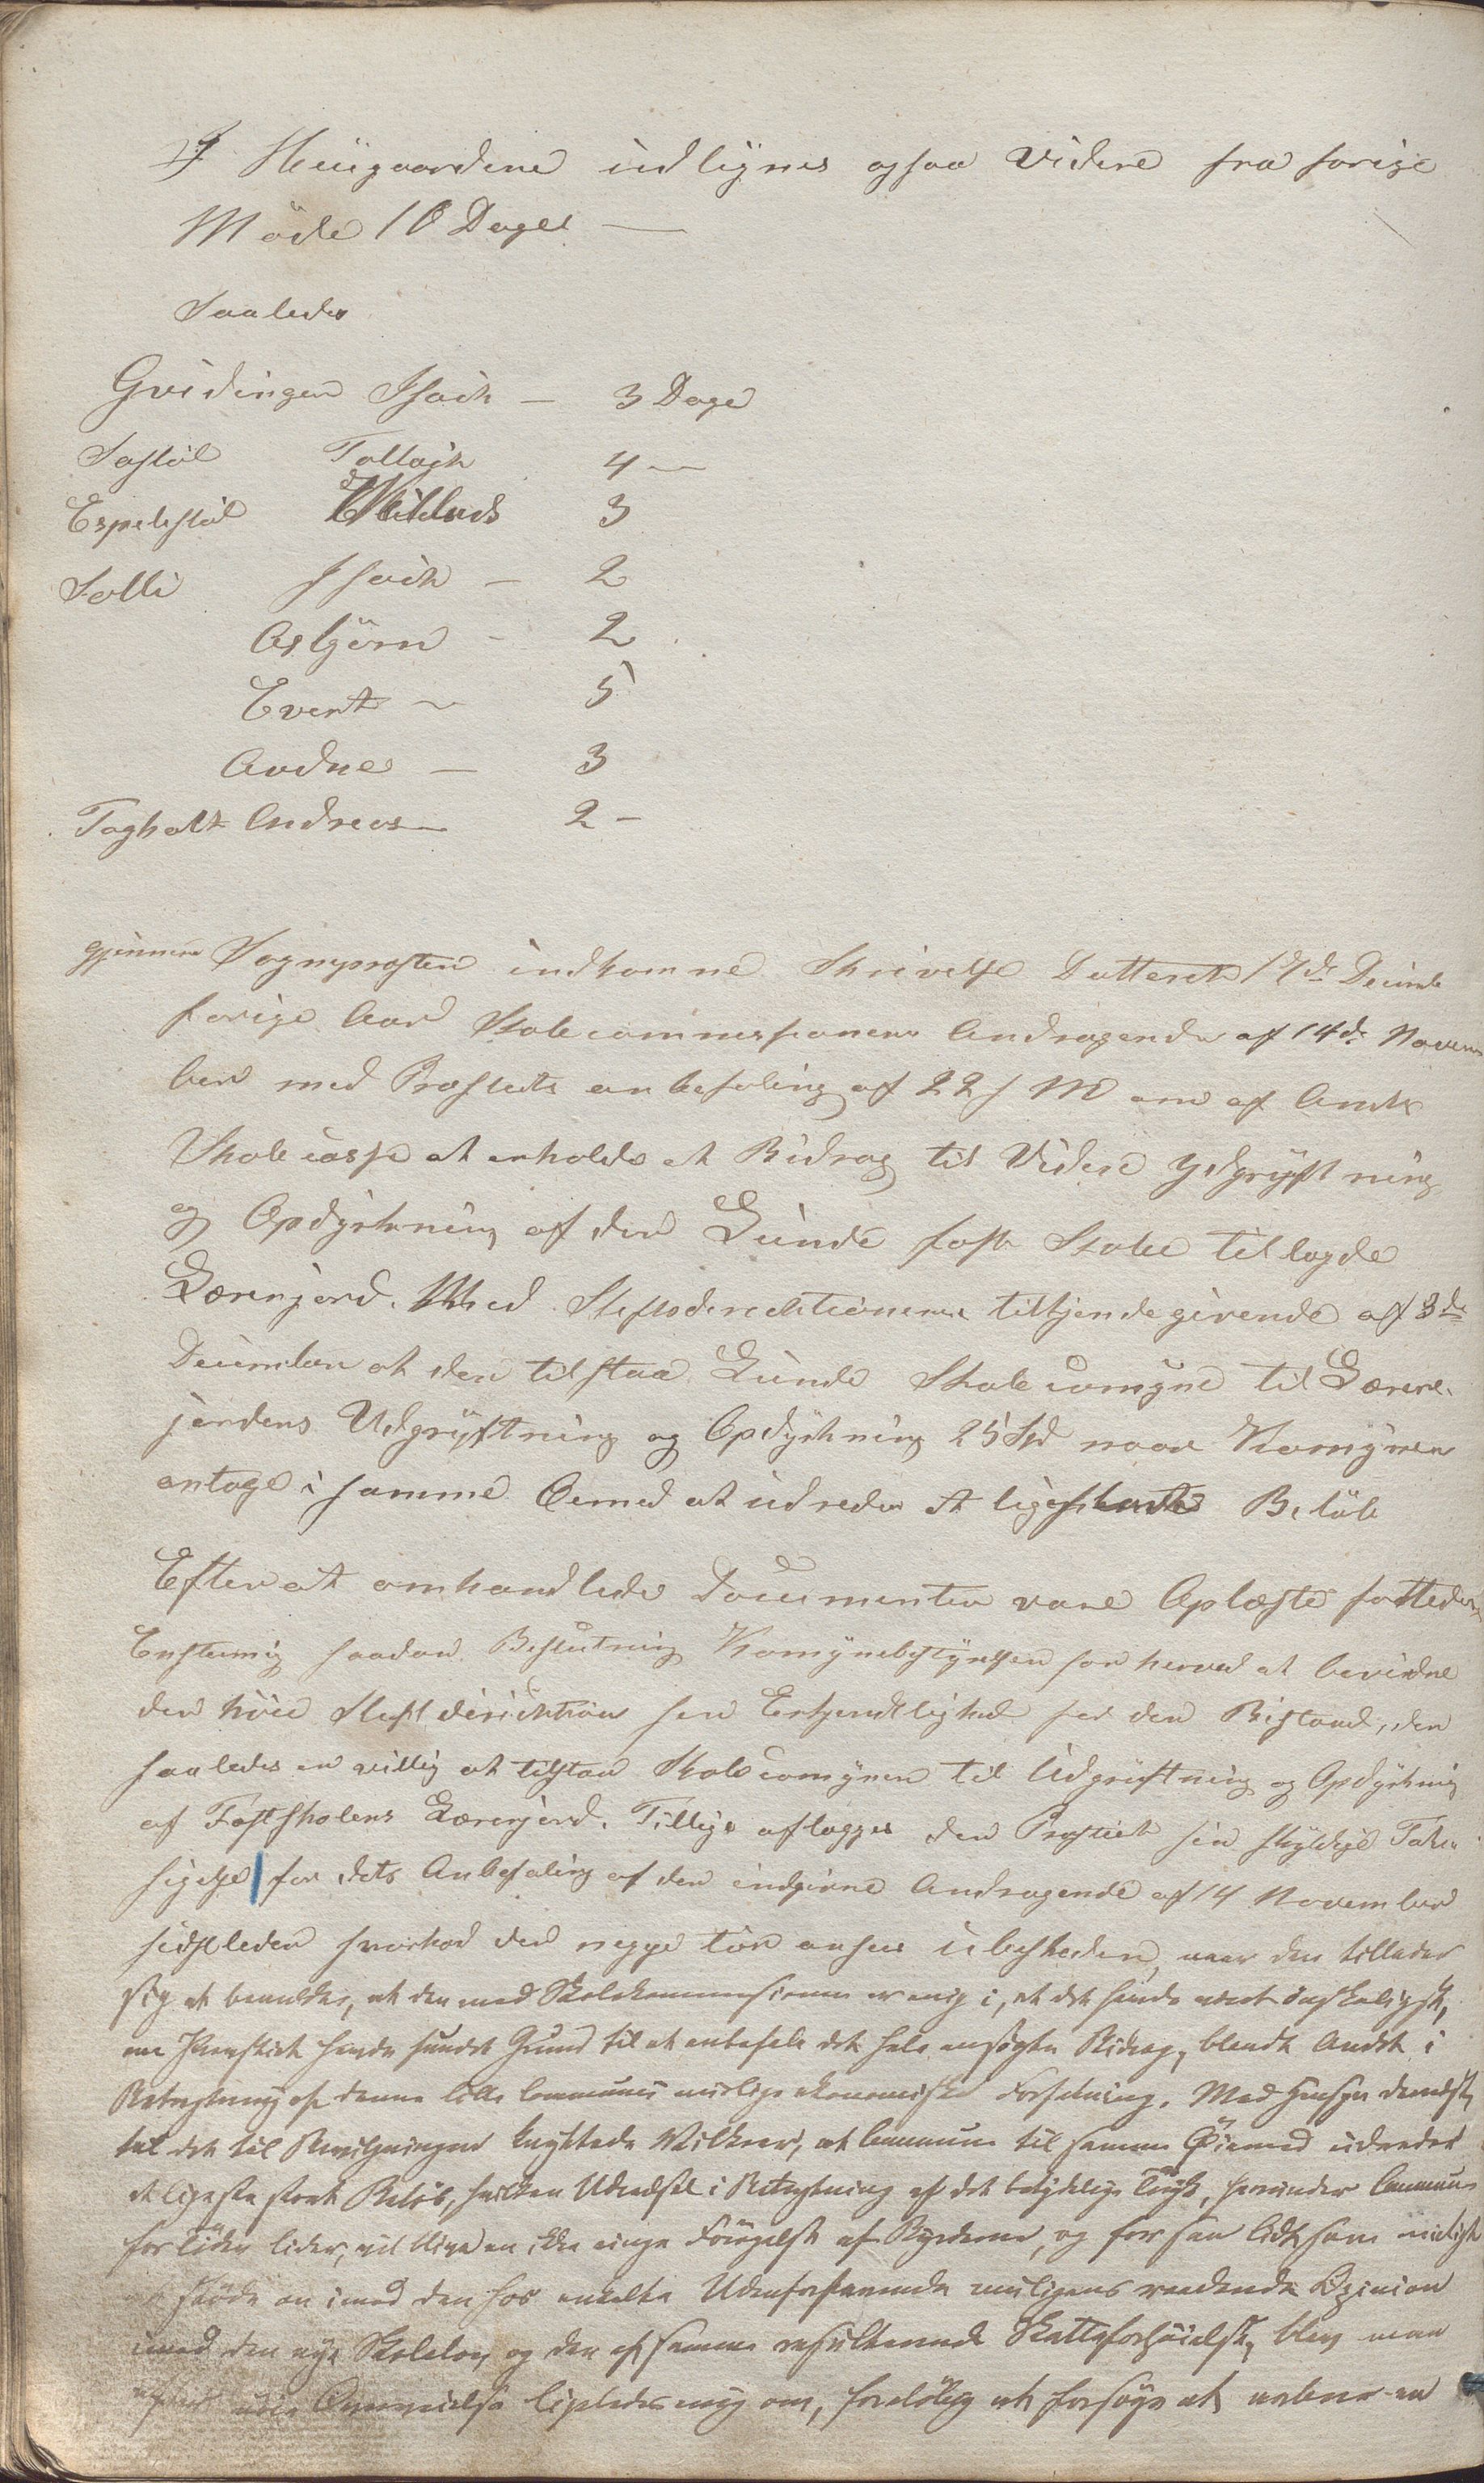 Huusgaardene udlignes ogsaa Videre fra forige
Møde 10 Dage
Saaledes
Gvidingen Isach — 3 Dage
Søstøl Tollagh 4 —
Espelstøl 3
Solli Isach — 2
Asbjørn - 2
Evert ~ 5
Aadne — 3
Tagholt Andreas — 2 -
gjennem Sogneprøsten indkomne Skrivelse Datteret 17de Decemb
forige Aar Skolecommissionens Andragende af 14de Novem
ber med Provstiets anbefaling af 22 s M om af Amts
Skolecasse at erholde et Bidrag til Videre Udgrøftning
og Opdyrkning af den Lunde fast Skole tillagde
Lærerjord. Med Stiftsdirektionens tilkjendegivende af 3de
December at den tilstaa Lunde Skolecomyne til Lærer-
jordens Udgrøftning og Opdyrkning 25 Spd naar Komynen
antage i samme Øemed at udrede et lige stort Beløb
Efter at omhandlede Documenter vare Oplæste fattedes
Enstemig saadan Beslutning Komynebestyrelsen for herved at bevidne
den høie Stiftdirecktion sin Erkjendtlighed for den Bistand, den
saaledes er villig at tilstaa Skolecomynen til Udgrøftning og Opdyrkning
af Fastskolens Lærerjord. Tillige aflægges den Provstiet sin skyldige Tak-
sigelse for dets Anbefaling af den indgivne Andragende af 14 November
sidstleden hvorhos den neppe tør ansees ubeskeden, naar den tillader
sig at bemærke, at den med Skolekommissionen er enig i, at det havde været ønskeligst,
om Provstiet havde fundet Grund til at anbefale det hele ansøgte Bidrag, blandt Andet i
Betragtning af denne lille Communes mislige økonomiske Forfatning. Med Hensyn dernæst
til det til Bevilgningen knyttede Vilkaar, at Communen til samme Øiemed udreder
et ligesaa stort Beløb, hvilken Udredsel i Betragtning af det betydelige Tryk, hvorunder Communen
for Tiden lider, vil blive en ikke ringe Forøgelse af Byrderne, og for saa lidt som muligt
at støde an imod den hos enkelte Udenforstaaende muligens raadende Opinion
imod den nye Skolelov og den af samme resulterende Skatteforhøielse, blev man
efter Overveielse ligeledes enig om, foreløbig at forsøge at aabne en